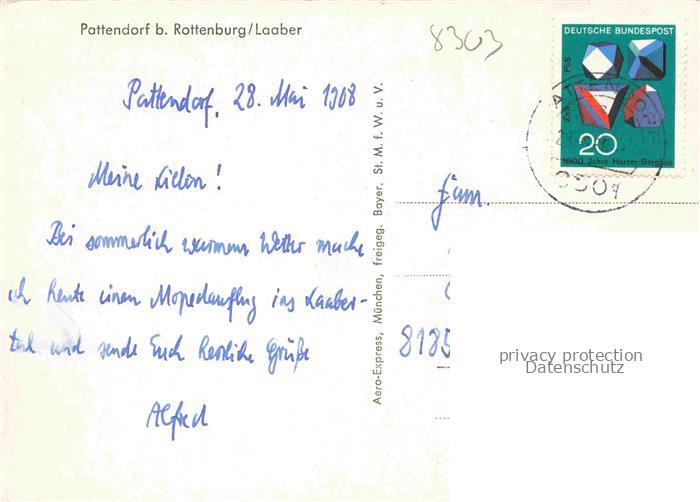 Pattendorf b. Rottenburg/Laaber
8303
DEUTSCHE BUNDESPOST
PbS
ZnS
20
1000 Jahre Harzer Bergbau
Pattendorf, 28. Mai 1968
Meine Lieben!
Bei sommerlich warmem Wetter mache
ich heute einen Mopedausflug ins Laaber-
tal und sende Euch herzliche Grüße
Alfred
Aero-Express, München, freigeg. Bayer. St. M. f. W. u. V.
Fam.
8185
privacy protection
Datenschutz